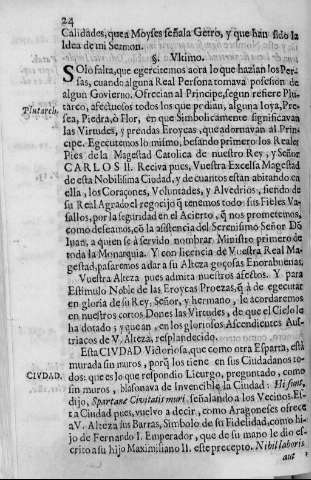 24
Calidades, que a Moyses señala Getro, y que han sido la
Idea de mi Sermon.
§. Vltimo.
SOlo falta, que egercitemos aora lo que hazian los Per-
sas, cuando alguna Real Persona tomava posesion de
algun Govierno. Ofrecian al Principe, segun refiere Plu-
Plutarch.
tarco, afectuosos todos los que podian, alguna Ioya, Pre-
sea, Piedra, ò Flor, en que Simbolicamente significavan
las Virtudes, y prendas Eroycas, que adornavan al Prin-
cipe. Egecutemos lo mismo, besando primero los Reales
Pies de la Magestad Catolica de nuestro Rey, y Señor
CARLOS II. Reciva pues, Vuestra Excelsa Magestad
de esta Nobilisima Ciudad, y de cuantos estan abitando en
ella, los Coraçones, Voluntades, y Alvedrios, siendo de
su Real Agrado el regocijo q̃ tenemos todos sus Fieles Va-
sallos, por la seguridad en el Acierto, q̃ nos prometemos,
como deseamos, cõ la asistencia del Serenisimo Señor Dõ
Iuan, a quien se à servido nombrar Ministro primero de
toda la Monarquia. Y con licencia de Vuestra Real Ma-
gestad, pasaremos a dar a su Alteza goçosas Enorabuenas.
Vuestra Alteza pues admita nuestros afectos. Y para
Estimulo Noble de las Eroycas Proezas, q̃ à de egecutar
en gloria de su Rey, Señor, y hermano, le acordaremos
en nuestros cortos Dones las Virtudes, de que el Cielo le
ha dotado; y que an, en los gloriosos Ascendientes Aus-
triacos de V. Alteza, resplandecido.
Esta CIVDAD Victoriosa, que como otra Esparta, está
murada sin muros, porq̃ los tiene en sus Ciudadanos to-
CIVDAD.
dos: que es lo que respondio Licurgo, preguntado, como
sin muros, blasonava de Invencible la Ciudad: Hi sunt,
dijo, Spartane Civitatis muri señalando a los Vecinos. Es-
ta Ciudad pues, vuelvo a decir, como Aragoneses ofrece
a V. Alteza sus Barras, Simbolo de su Fidelidad, como hi-
jo de Fernando I. Emperador, que de su mano le dio es-
crito a su hijo Maximiliano II. este precepto. Nihil laboris
aut